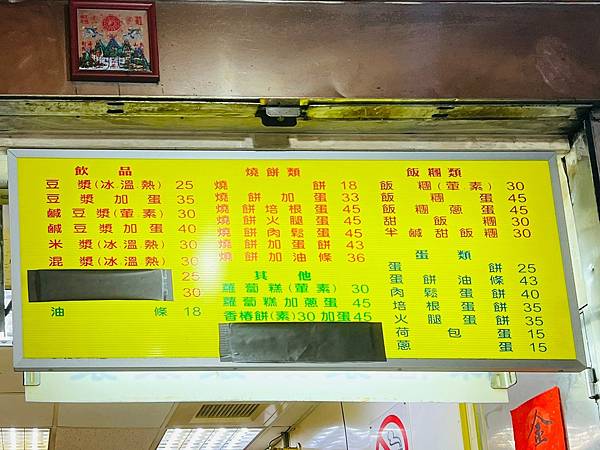 飲品
豆漿(冰溫熱) 25
豆漿加蛋 35
鹹豆漿(葷素) 30
鹹豆漿加蛋 40
米漿(冰溫熱) 30
混漿(冰溫熱) 30
25
30
油條 18
燒餅類
燒餅 18
燒餅加蛋 33
燒餅培根蛋 45
燒餅火腿蛋 45
燒餅肉鬆蛋 45
燒餅加蛋餅 43
燒餅加油條 36
其他
蘿蔔糕(葷素) 30
蘿蔔糕加蔥蛋 45
香椿餅(素)30 加蛋45
飯糰類
飯糰(葷素) 30
飯糰蛋 45
飯糰蔥蛋 45
甜飯糰 30
半鹹甜飯糰 30
蛋類
蛋餅 25
蛋餅油條 43
肉鬆蛋餅 40
培根蛋餅 35
火腿蛋餅 35
荷包蛋 15
蔥蛋 15
金